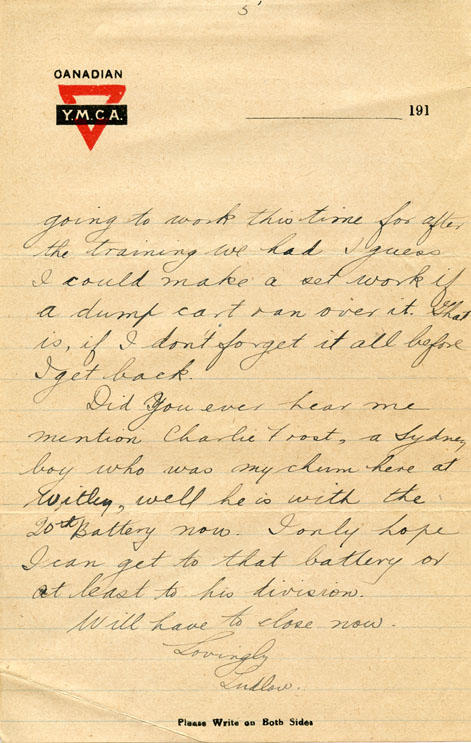 5
CANADIAN
Y.M.C.A.
191
going to work this time for after
the training we had I guess
I could make a set work if
a dump cart ran over it. That
is, if I don't forget it all before
I get back.
Did You ever hear me
mention Charlie Frost, a Sydney
boy who was my chum here at
Witley, well he is with the
20th Battery now. I only hope
I can get to that battery or
at least to his division.
Will have to close now.
Lovingly
Ludlow.
Please Write on Both Sides